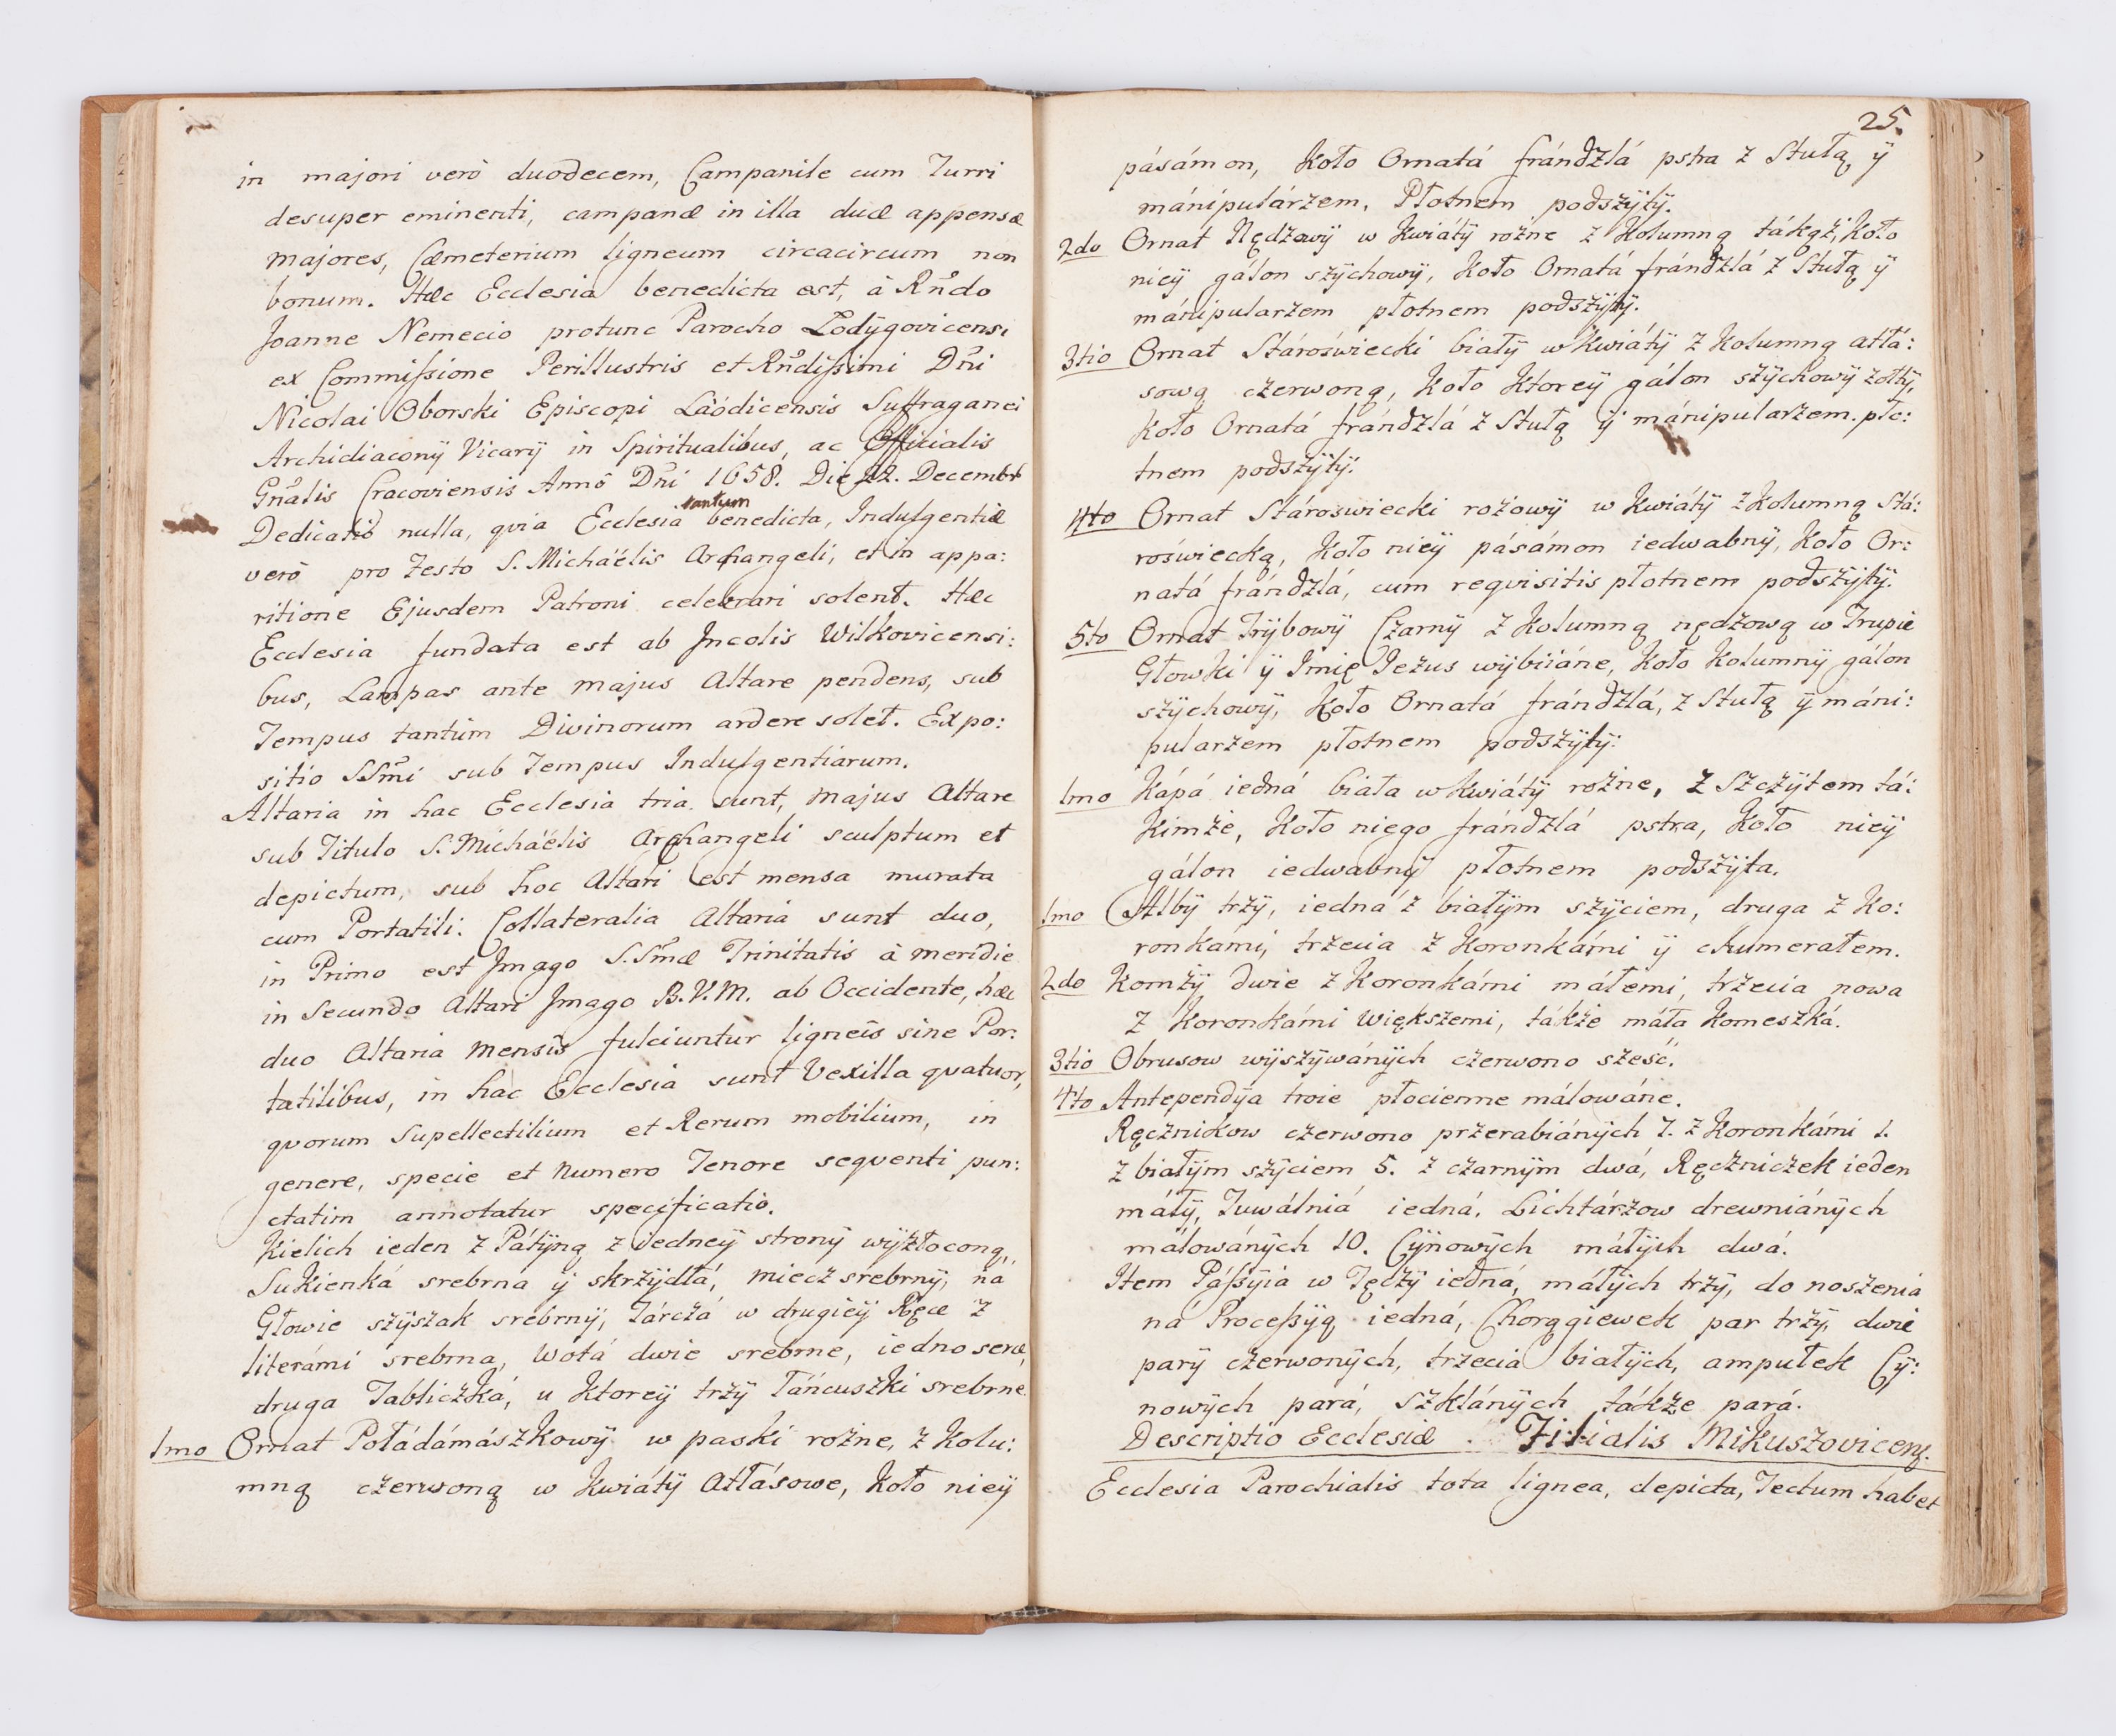 in majori verò duodecem, Campanile cum Turri
desuper eminenti, campanæ in illa duæ appensæ
majores, Cæmeterium ligneum circacircum non
bonum. Hæc Ecclesia benedicta est, à Rñdo
Joanne Nemecio protunc Parocho Łodÿgovicensi
ex Commißione Perillustris et Rñdißimi Dñi
Nicolai Oborski Episcopi Laodicensis Suffraganei
Archidiaconÿ Vicarÿ in Spiritualibus, ac Officialis
Gñalis Cracoviensis Annô Dñi 1658. Die 22. Decembr
tantum
Dedicatio nulla, qvia Ecclesia benedicta, Indulgentiæ
verò pro Festo S. Michaélis Archangeli, et in appa:
ritione Ejusdem Patroni celebrari solent. Hæc
Ecclesia fundata est ab Jncolis Wilkovicensi:
bus, Lampas ante majus Altare pendens, sub
Tempus tantùm Divinorum ardere solet. Expo:
sitio SSm̃i sub Tempus Indulgentiarum.
Altaria in hac Ecclesia tria sunt, majus Altare
sub Titulo S. Michaélis Archangeli sculptum et
depictum, sub hoc Altari est mensa murata
cum Portatili. Collateralia Altaria sunt duo,
in Primo est Jmago S.Sm̃æ Trinitatis à meridie
in Secundo Altari Jmago B.V.M. ab Occidente, hæc
duo Altaria mensîs fulciuntur ligneîs sine Por:
tatilibus, in hac Ecclesia sunt Vexilla qvatuor,
qvorum Supellectilium et Rerum mobilium, in
genere, specie et numero Tenore seqventi pun:
ctatim annotatur specificatio.
Kielich ieden z Pátÿną z iedneÿ stronÿ wÿzłoconą,
Sukienká srebrna ÿ skrzÿdłá, miecz srebrnÿ, ná
Głowie szÿszak srebrnÿ, Tárczá w drugieÿ Ręce z
literámi srebrna, Wotá dwie srebrne, iedno serce,
druga Tabliczká, u ktoreÿ trzÿ Łáńcuszki srebrne
1mo Ornat Połádámászkowÿ w paski rożne, z Kolu:
mną czerwoną w Kwiátÿ Atłásowe, Koło nieÿ
25.
pásámon, Koło Ornatá frándzlá pstra z Stułą ÿ
mánipulárzem, Płotnem podszÿtÿ.
2do Ornat Nędzowÿ w Kwiátÿ rożne z Kolumną tákąż, Koło
nieÿ gálon szÿchowÿ, Koło Ornatá frándzlá z Stułą ÿ
mánipularzem płotnem podszÿtÿ.
3tio Ornat Stároświecki białÿ w Kwiátÿ z Kolumną atłá:
sową czerwoną, Koło Ktoreÿ gálon szÿchowÿ żołtÿ,
Koło Ornatá frándzlá z Stułą ÿ mánipularzem. pło:
tnem podszÿtÿ.
4to Ornat Stároswiecki rożowÿ w Kwiátÿ z Kolumną Stá:
roświecką, Koło nieÿ pásámon iedwabnÿ, Koło Or:
natá frándzlá, cum reqvisitis płotnem podszÿtÿ.
5to Ornat Trÿbowÿ Czarnÿ z Kolumną nędzową w Trupie
Głowki ÿ Imię Jezus wÿbiiáne, Koło Kolumnÿ gálon
szÿchowÿ, Koło Ornatá frándzlá, z Stułą ÿ máni:
pularzem płotnem podszÿtÿ.
1mo Kápá iedná biała w Kwiátÿ rożne, z Szczÿtem tá:
Kimże, Koło niego frándzlá pstra, Koło nieÿ
gálon iedwabnÿ płotnem podszÿta.
1mo Albÿ trzÿ, iedná z białÿm szÿciem, druga z Ko:
ronkami, trzecia z Koronkámi ÿ Humerałem.
2do Komżÿ dwie z Koronkámi máłemi, trzecia nowa
z Koronkámi Większemi, tákże máła Komeszká.
3tio Obrusow wÿszÿwánÿch czerwono sześć.
4to Antependÿa troie płocienne málowáne.
Ręcznikow czerwono przerabiánÿch 7. z Koronkámi 1.
z białÿm szÿciem 5. z czarnÿm dwá, Ręczniczek ieden
máłÿ, Tuwálniá iedná, Lichtárzow drewniánÿch
málowánÿch 10. Cÿnowÿch máłÿch dwá.
Item Páßÿia w Tęczÿ iedná, máłÿch trzÿ, do noszenia
ná Proceßÿą iedná, Chorągiewek par trzÿ, dwie
parÿ czerwonÿch, trzecia białÿch, ampułek Cÿ:
nowÿch pará, szklánÿch tákże pará.
Descriptio Ecclesiæ Filialis Mikuszovicens.
Ecclesia Parochialis tota lignea, depicta, Tectum habet